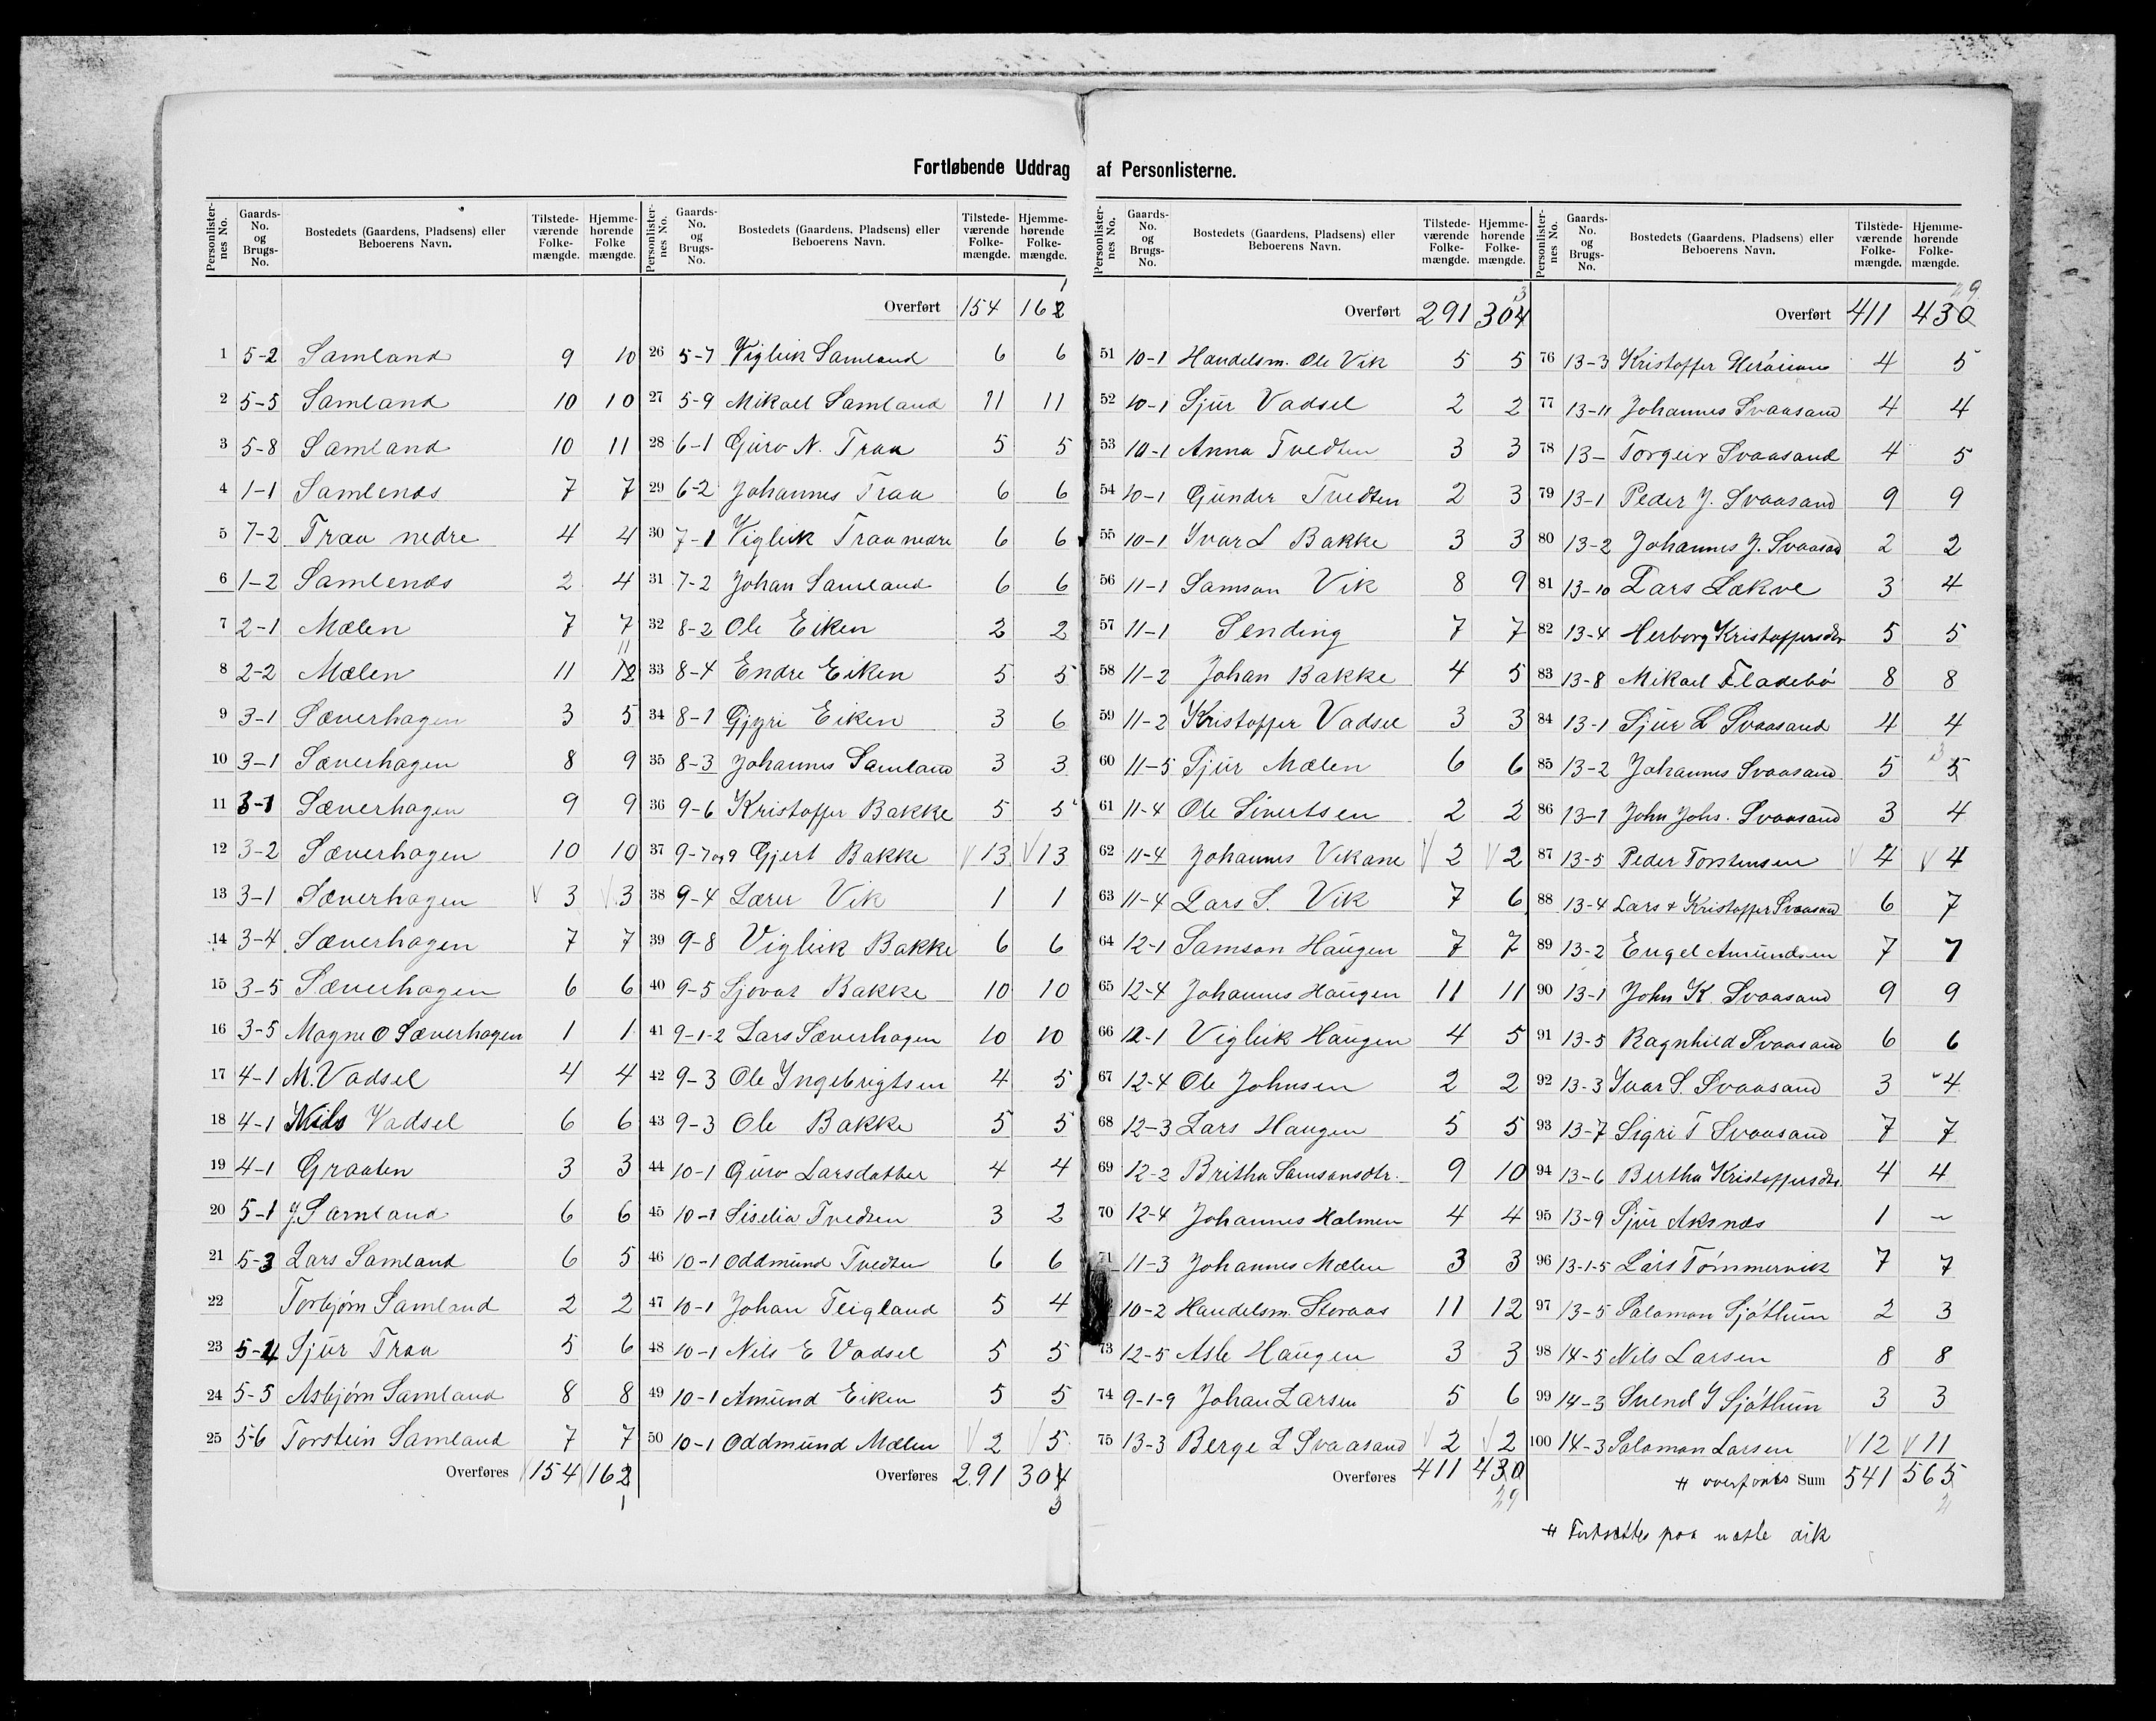 Fortløbende Uddrag af Personlisterne.
Personlister-nes No. Gaards-No. og Brugs-No. Bostedets (Gaardens, Pladsens) eller Beboerens Navn. Tilstede-værende Folke-mængde. Hjemme-hørende Folke mængde.
1 5-2 Samland 9 10
2 5-5 Samland 10 10
3 5-8 Samland 10 11
4 1-1 Samlends 7 7
5 7-2 Traa nedre 4 4
6 1-2 Samlends 2 4
7 2-1 Mælen 7 7
8 2-2 Mælen 11 12 11
9 3-1 Sæverhagen 3 5
10 3-1 Sæverhagen 8 9
11 3-1 Sæverhagen 9 9
12 3-2 Sæverhagen 10 10
13 3-1 Sæverhagen V 3 V 3
14 3-4 Sæverhagen 7 7
15 3-5 Sæverhagen 6 6
16 3-5 Magne O Sæverhagen 1 1
17 4-1 M. Vadsel 4 4
18 4-1 Nils Vadsel 6 6
19 4-1 Graaten 3 3
20 5-1 J. Samland 6 6
21 5-3 Lars Samland 6 5
22 Torbjørn Samland 2 2
23 5-4 Sjur Traa 5 6
24 5-5 Asbjørn Samland 8 8
25 5-6 Torstein Samland 7 7
Overføres 154 162
1
Personlister-nes No. Gaards-No. og Brugs-No. Bostedets (Gaardens, Pladsens) eller Beboerens Navn. Tilstede-værende Folke-mængde. Hjemme-hørende Folke-mængde.
Overført 154 162 1
26 5-7 Vigleik Samland 6 6
27 5-9 Mikael Samland 11 11
28 6-1 Guro N. Traa 5 5
29 6-2 Johannes Traa 6 6
30 7-1 Vigleik Traa nedre 6 6
31 7-2 Johan Samland 6 6
32 8-2 Ole Eiken 2 2
33 8-4 Endre Eiken 5 5
34 8-1 Gjyri Eiken 3 6
35 8-3 Johannes Samland 3 3
36 9-6 Kristoffer Bakke 5 5
37 9-7 og 9 Gjert Bakke V 13 V 13
38 9-4 Lærer Vik 1 1
39 9-8 Vigleik Bakke 6 6
40 9-5 Sjovat Bakke 10 10
41 9-1-2 Lars Sæverhagen 10 10
42 9-3 Ole Yngebrigtsen 4 5
43 9-3 Ole Bakke 5 5
44 10-1 Guro Larsdatter 4 4
45 10-1 Siselia Tvedten 3 2
46 10-1 Oddmund Tvedten 6 6
47 10-1 Johan Teigland 5 4
48 10-1 Nils E Vadsel 5 5
49 10-1 Amund Eiken 5 5
50 10-1 Oddmund Mælen V 2 V 5
Overføres 291 304
3
Personlister-nes No. Gaards-No. og Brugs-No. Bostedets (Gaardens, Pladsens) eller Beboerens Navn. Tilstede-værende Folke-mængde. Hjemme-hørende Folke-mængde.
Overført 291 304 3
51 10-1 Handelsm. Ole Vik 5 5
52 10-1 Sjur Vadsel 2 2
53 10-1 Anna Tvedten 3 3
54 10-1 Gunder Tvedten 2 3
55 10-1 Ivar L Bakke 3 3
56 11-1 Samson Vik 8 9
57 11-1 Sending 7 7
58 11-2 Johan Bakke 4 5
59 11-2 Kristoffer Vadsel 3 3
60 11-5 Sjur Mælen 6 6
61 11-4 Ole Sivertsen 2 2
62 11-4 Johannes Vikane V 2 V 2
63 11-4 Lars S. Vik 7 6
64 12-1 Samson Haugen 7 7
65 12-4 Johannes Haugen 11 11
66 12-1 Vigleik Haugen 4 5
67 12-4 Ole Johnsen 2 2
68 12-3 Lars Haugen 5 5
69 12-2 Britha Samsonsdtr. 9 10
70 12-4 Johannes Halmen 4 4
71 11-3 Johannes Mælen 3 3
10-2 Handelsm. Storaas 11 12
73 12-5 Asle Haugen 3 3
74 9-1-9 Johan Larsen 5 6
75 13-3 Berge L Svaasand V 2 V 2
Overføres 411 430
29
Personlister-nes No. Gaards-No. og Brugs-No. Bostedets (Gaardens, Pladsens) eller Beboerens Navn. Tilstede-værende Folke-mængde. Hjemme-hørende Folke-mængde.
Overført 411 430 29
76 13-3 Kristoffer 4 5
77 13-11 Johannes Svaasand 4 4
78 13- Torgeir Svaasand 4 5
79 13-1 Peder J. Svaasand 9 9
80 13-2 Johannes J. Svaasad 2 2
81 13-10 Lars Lækve 3 4
82 13-4 Herborg Kristoffersdtr 5 5
83 13-8 Mikael Fladebø 8 8
84 13-1 Sjur L Svaasand 4 4
85 13-2 Johannes Svaasand 5 5 3
86 13-1 John Johs. Svaasand 3 4
87 13-5 Peder Torstensen V 4 V 4
88 13-4 Lars & Kristoffer Svaasand 6 7
89 13-2 Engel Amundsen 7 7
90 13-1 John K. Svaasand 9 9
91 13-5 Ragnhild Svaasand 6 6
92 13-3 Ivar S. Svaasand 3 4
93 13-7 Sigri T Svaasand 7 7
94 13-6 Bertha Kristoffersdtr 4 4
95 13-9 Sjur Aksnæs 1 -
96 13-1-5 Lars Tømmervik 7 7
97 13-5 Salamon Sjøthun 2 3
98 14-5 Nils Larsen 8 8
99 14-3 Svend J Sjøthun 3 3
100 14-3 Salamon Larsen V 12 V 11
# overføres Sum 541 565
# Fortsættes paa næste ark